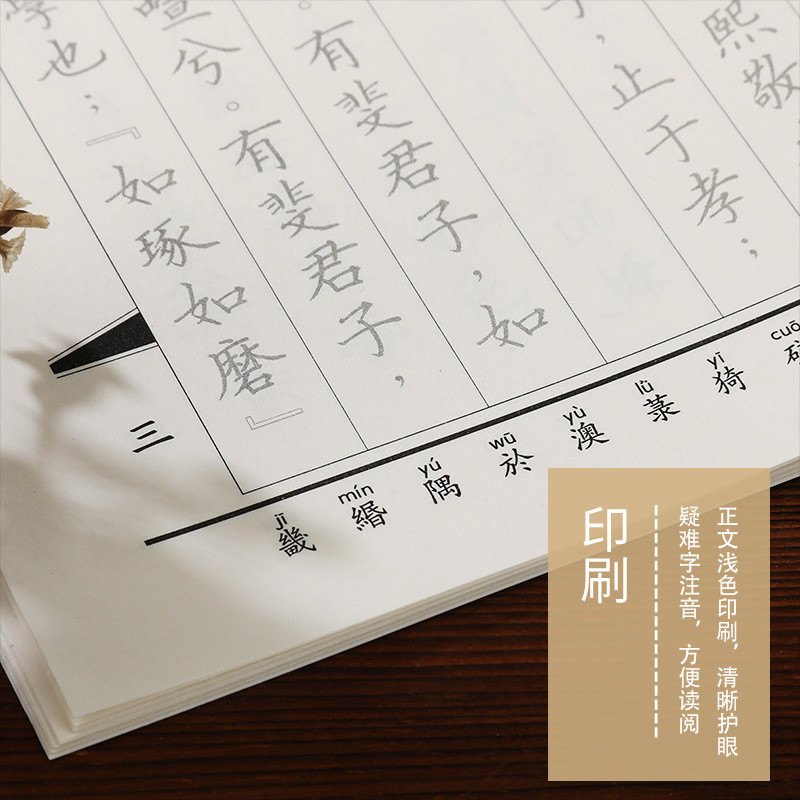 熙敬
，止于孝；
。有斐君子，如
兮。有斐君子，
也；『如琢如磨』
三
jī mín yú wū yù lù yī cuō
畿 緡 隅 於 澳 菉 猗
印刷
正文浅色印刷，清晰护眼
疑难字注音，方便读阅